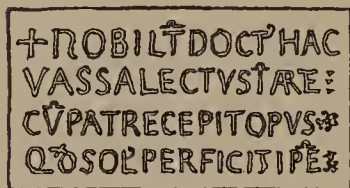 +NOBILIT̄DOCT'HAC
VASSALECTVSĪARTE⋮
CV̄PATRECEPITOPVS⁘
QD̄SOL'PERFICITIP̄E⁘